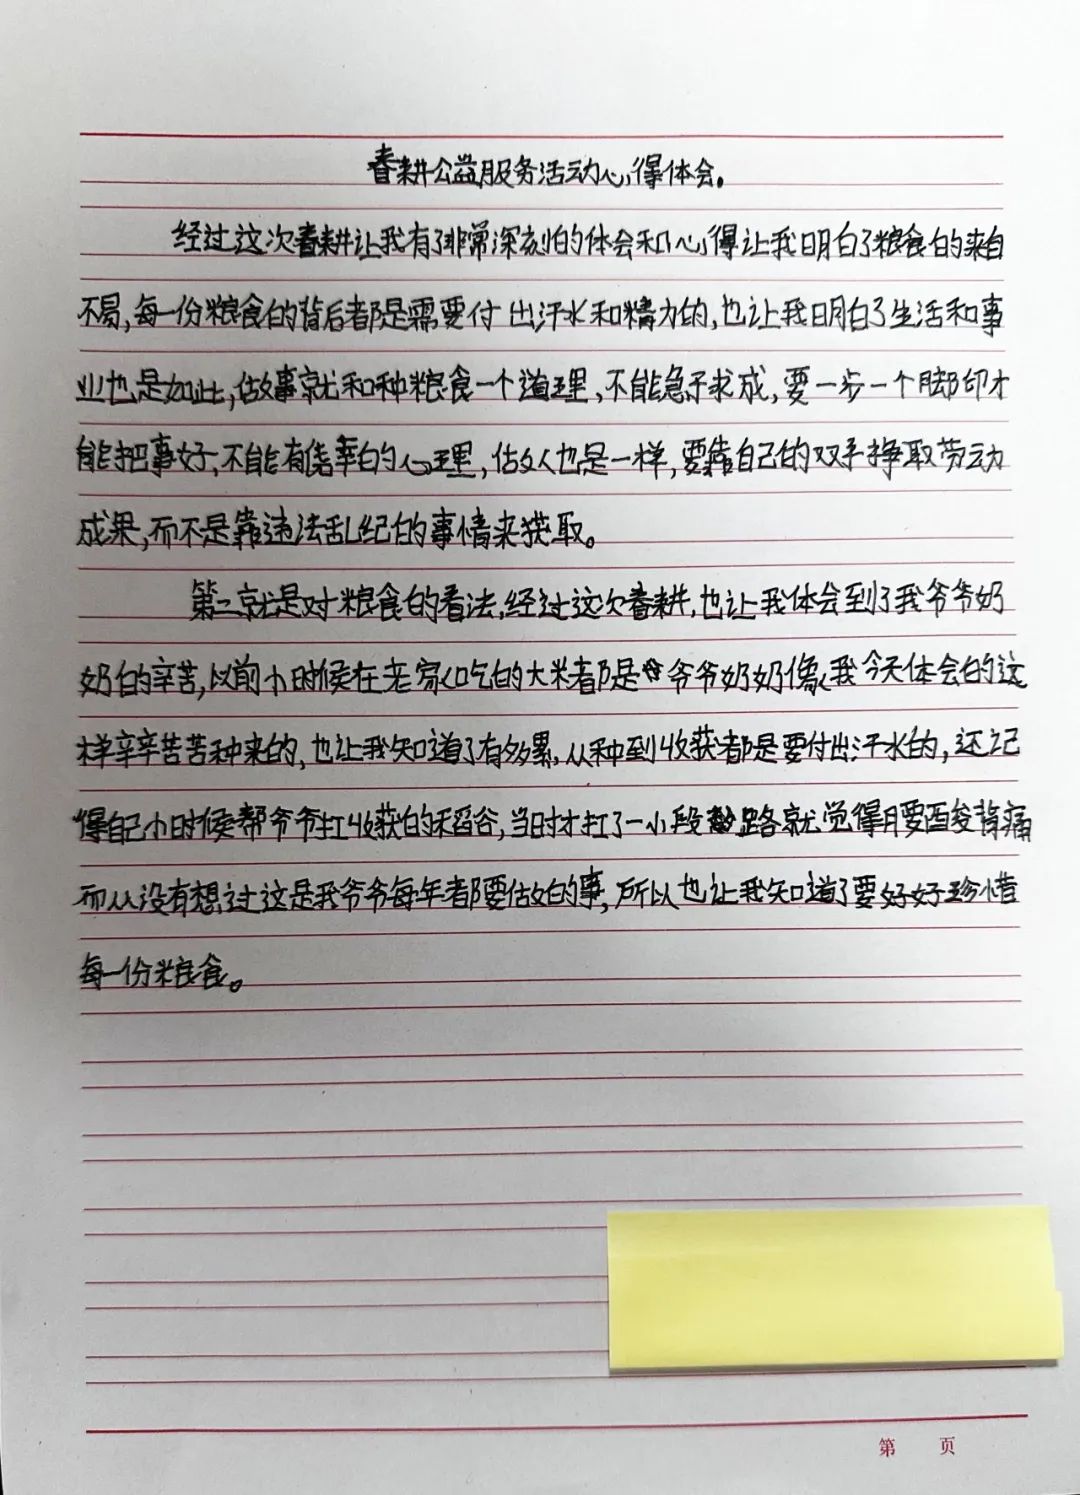 春耕公益服务活动心得体会。
经过这次春耕让我有了非常深刻的体会和心得让我明白了粮食的来自
不易,每一份粮食的背后都是需要付出汗水和精力的,也让我明白了生活和事
业也是如此,做事就和种粮食一个道理,不能急于求成,要一步一个脚印才
能把事好,不能有侥幸的心理,做人也是一样,要靠自己的双手挣取劳动
成果,而不是靠违法乱纪的事情来获取。
第二就是对粮食的看法,经过这次春耕,也让我体会到了我爷爷奶
奶的辛苦,以前小时候在老家吃的大米都是爷爷奶奶像我今天体会的这
样辛辛苦苦种来的,也让我知道了有多累,从种到收获都是要付出汗水的,还记
得自己小时候帮爷爷扛收获的稻谷,当时才扛了一小段路就觉得腰酸背痛
而从没有想过这是我爷爷每年都要做的事,所以也让我知道了要好好珍惜
每一份粮食。
第 页